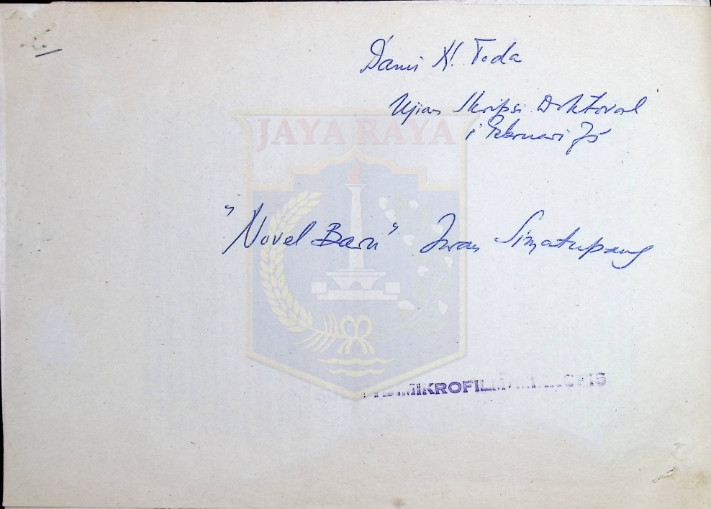 Dami N. Toda
Ujian Skripsi Doktoral
1 Februari 75
JAYA RAYA
"Novel Baru" Iwan Simatupang